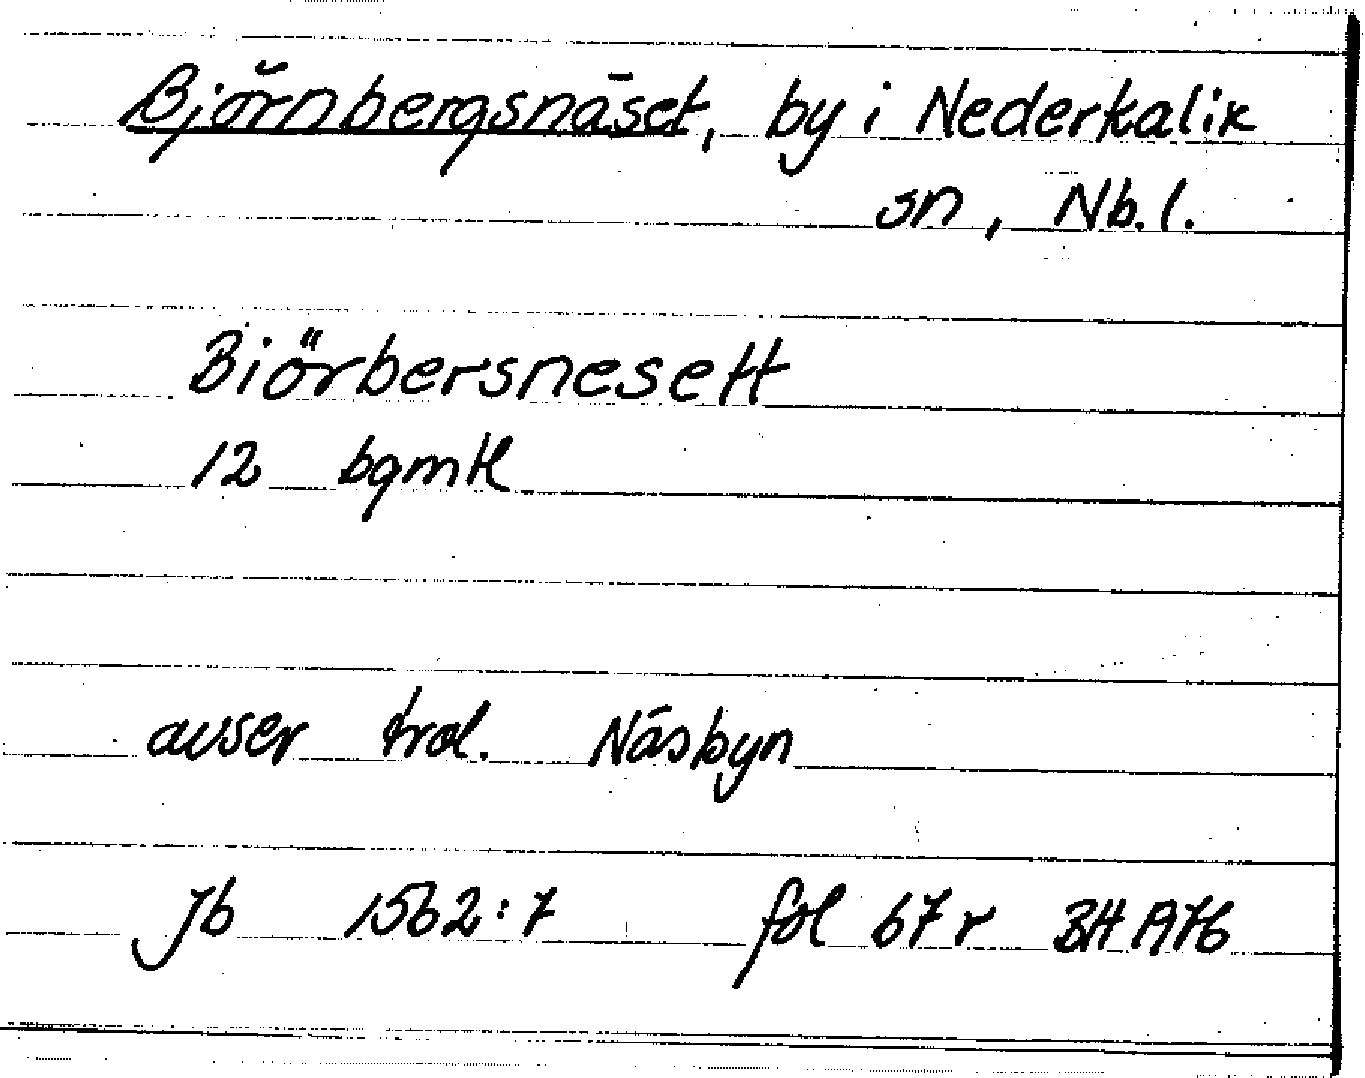 Björnbergsnäset, by i Nederkalix
sn, Nb.l.
Biörbersnesett
12 bgmkl
avser trol. Näsbyn
Jb 1562:7 fol 67 r BH 1976